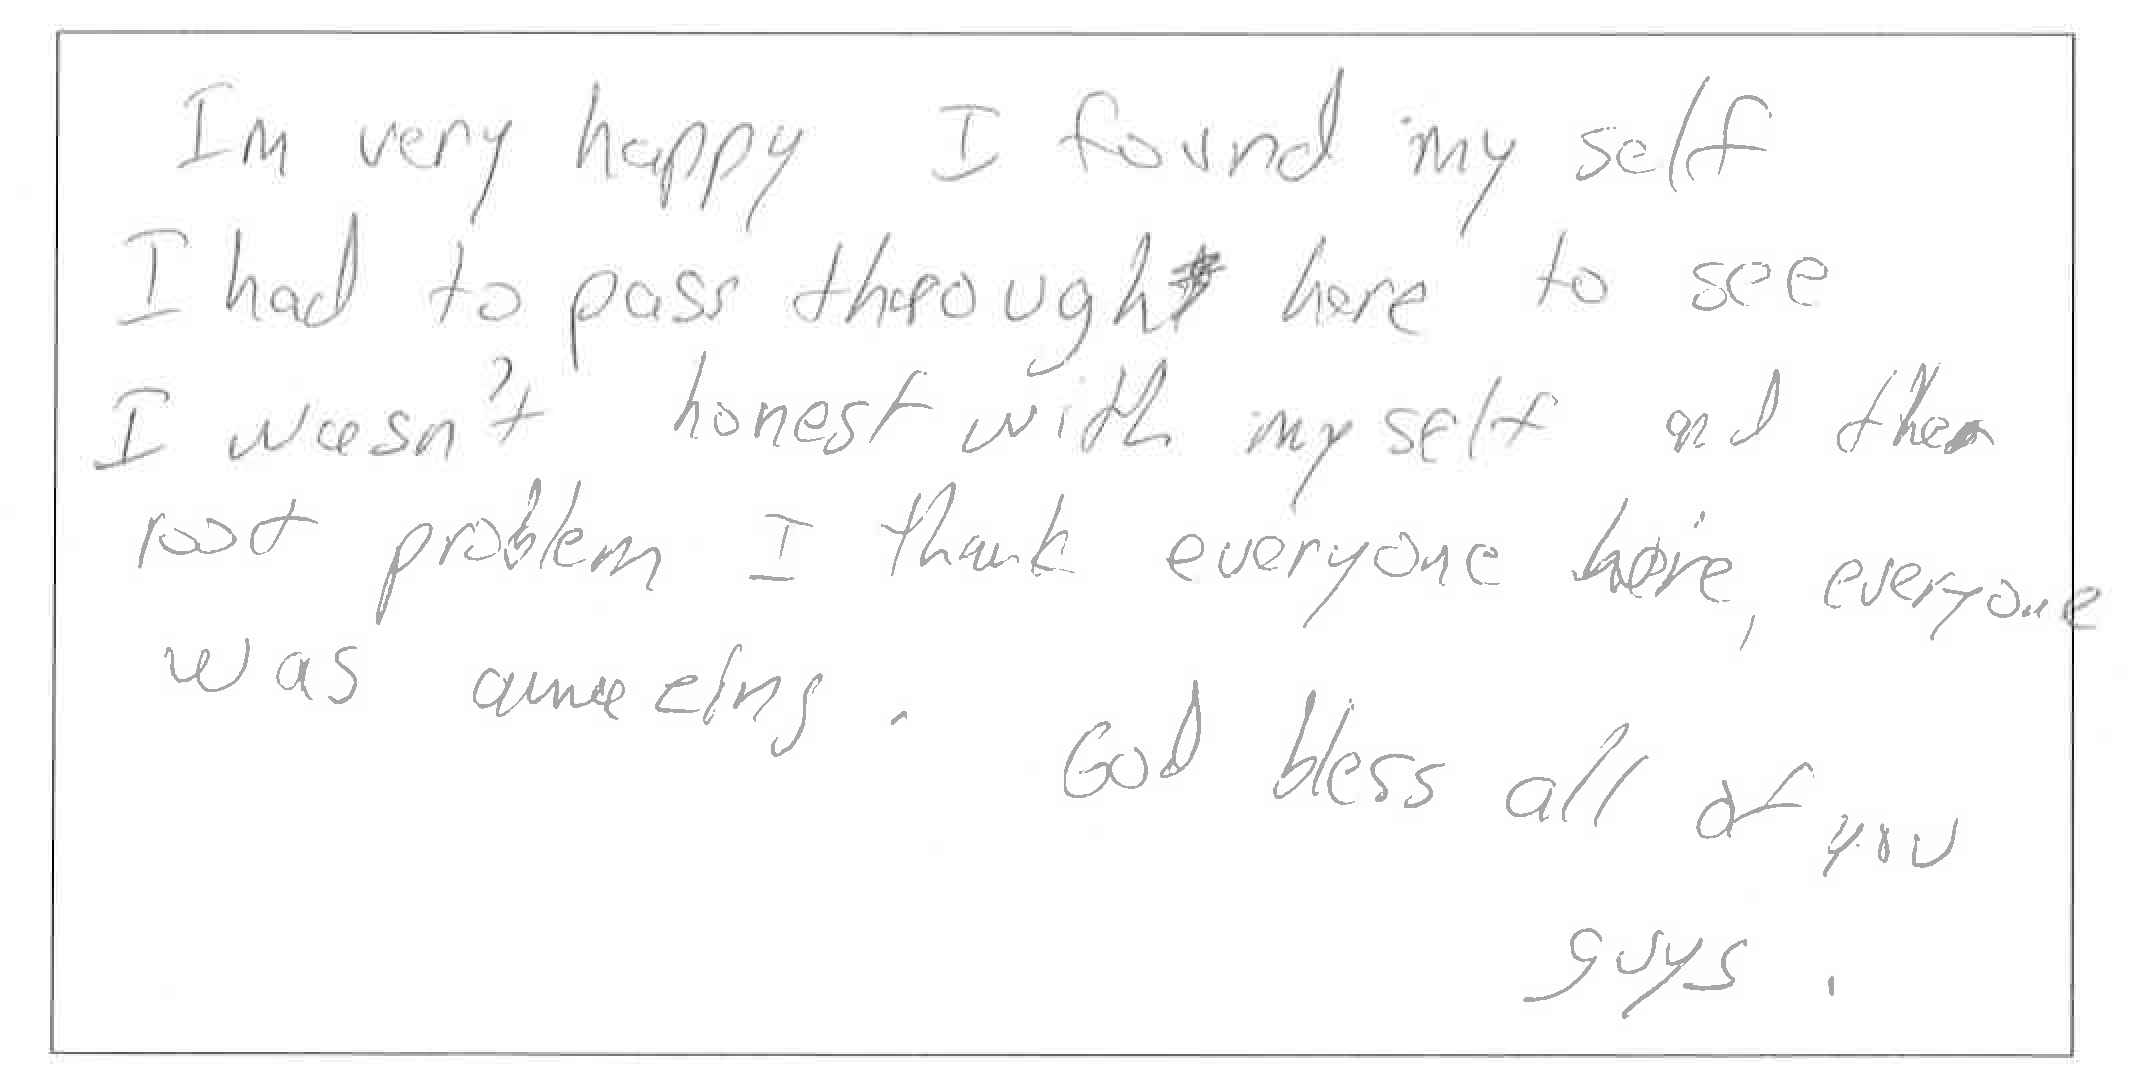 Im very happy I found my self
I had to pass through here to see
I wasn't honest with my self and the
root problem I thank everyone here, everyone
was amaezing.
God bless all of you
guys.